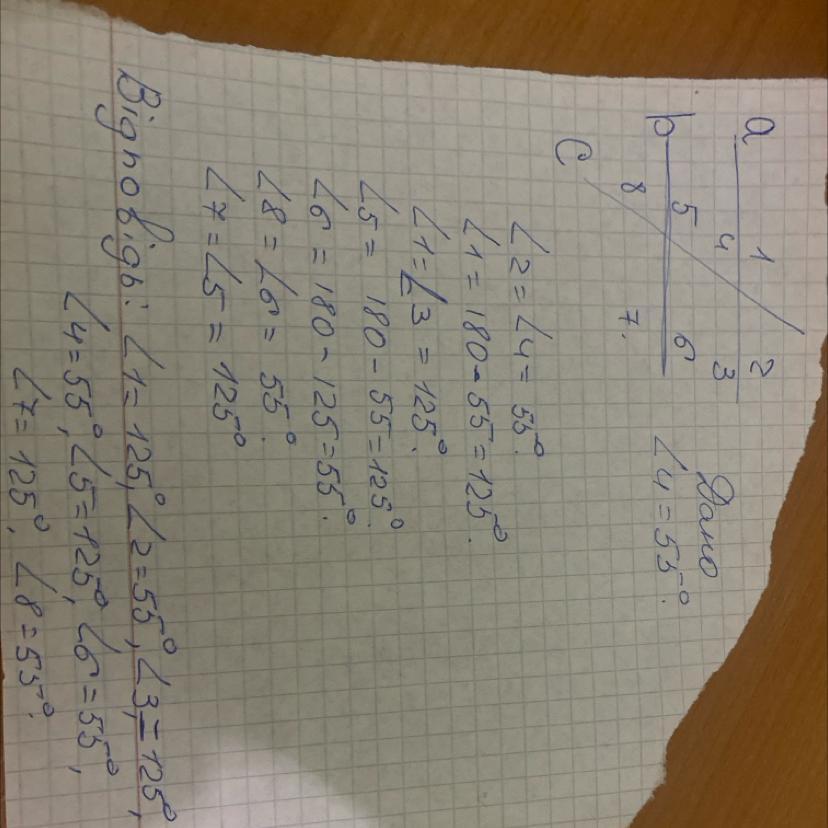 a
1
2
4
3
b
5
6
8
7.
c
Дано
∠4 = 55°.
∠2 = ∠4 = 55°.
∠1 = 180 - 55 = 125°.
∠1 = ∠3 = 125°.
∠5 = 180 - 55 = 125°.
∠6 = 180 - 125 = 55°.
∠8 = ∠6 = 55°.
∠7 = ∠5 = 125°
Відповідь: ∠1 = 125°, ∠2 = 55°, ∠3 = 125°,
∠4 = 55°, ∠5 = 125°, ∠6 = 55°,
∠7 = 125°, ∠8 = 55°.